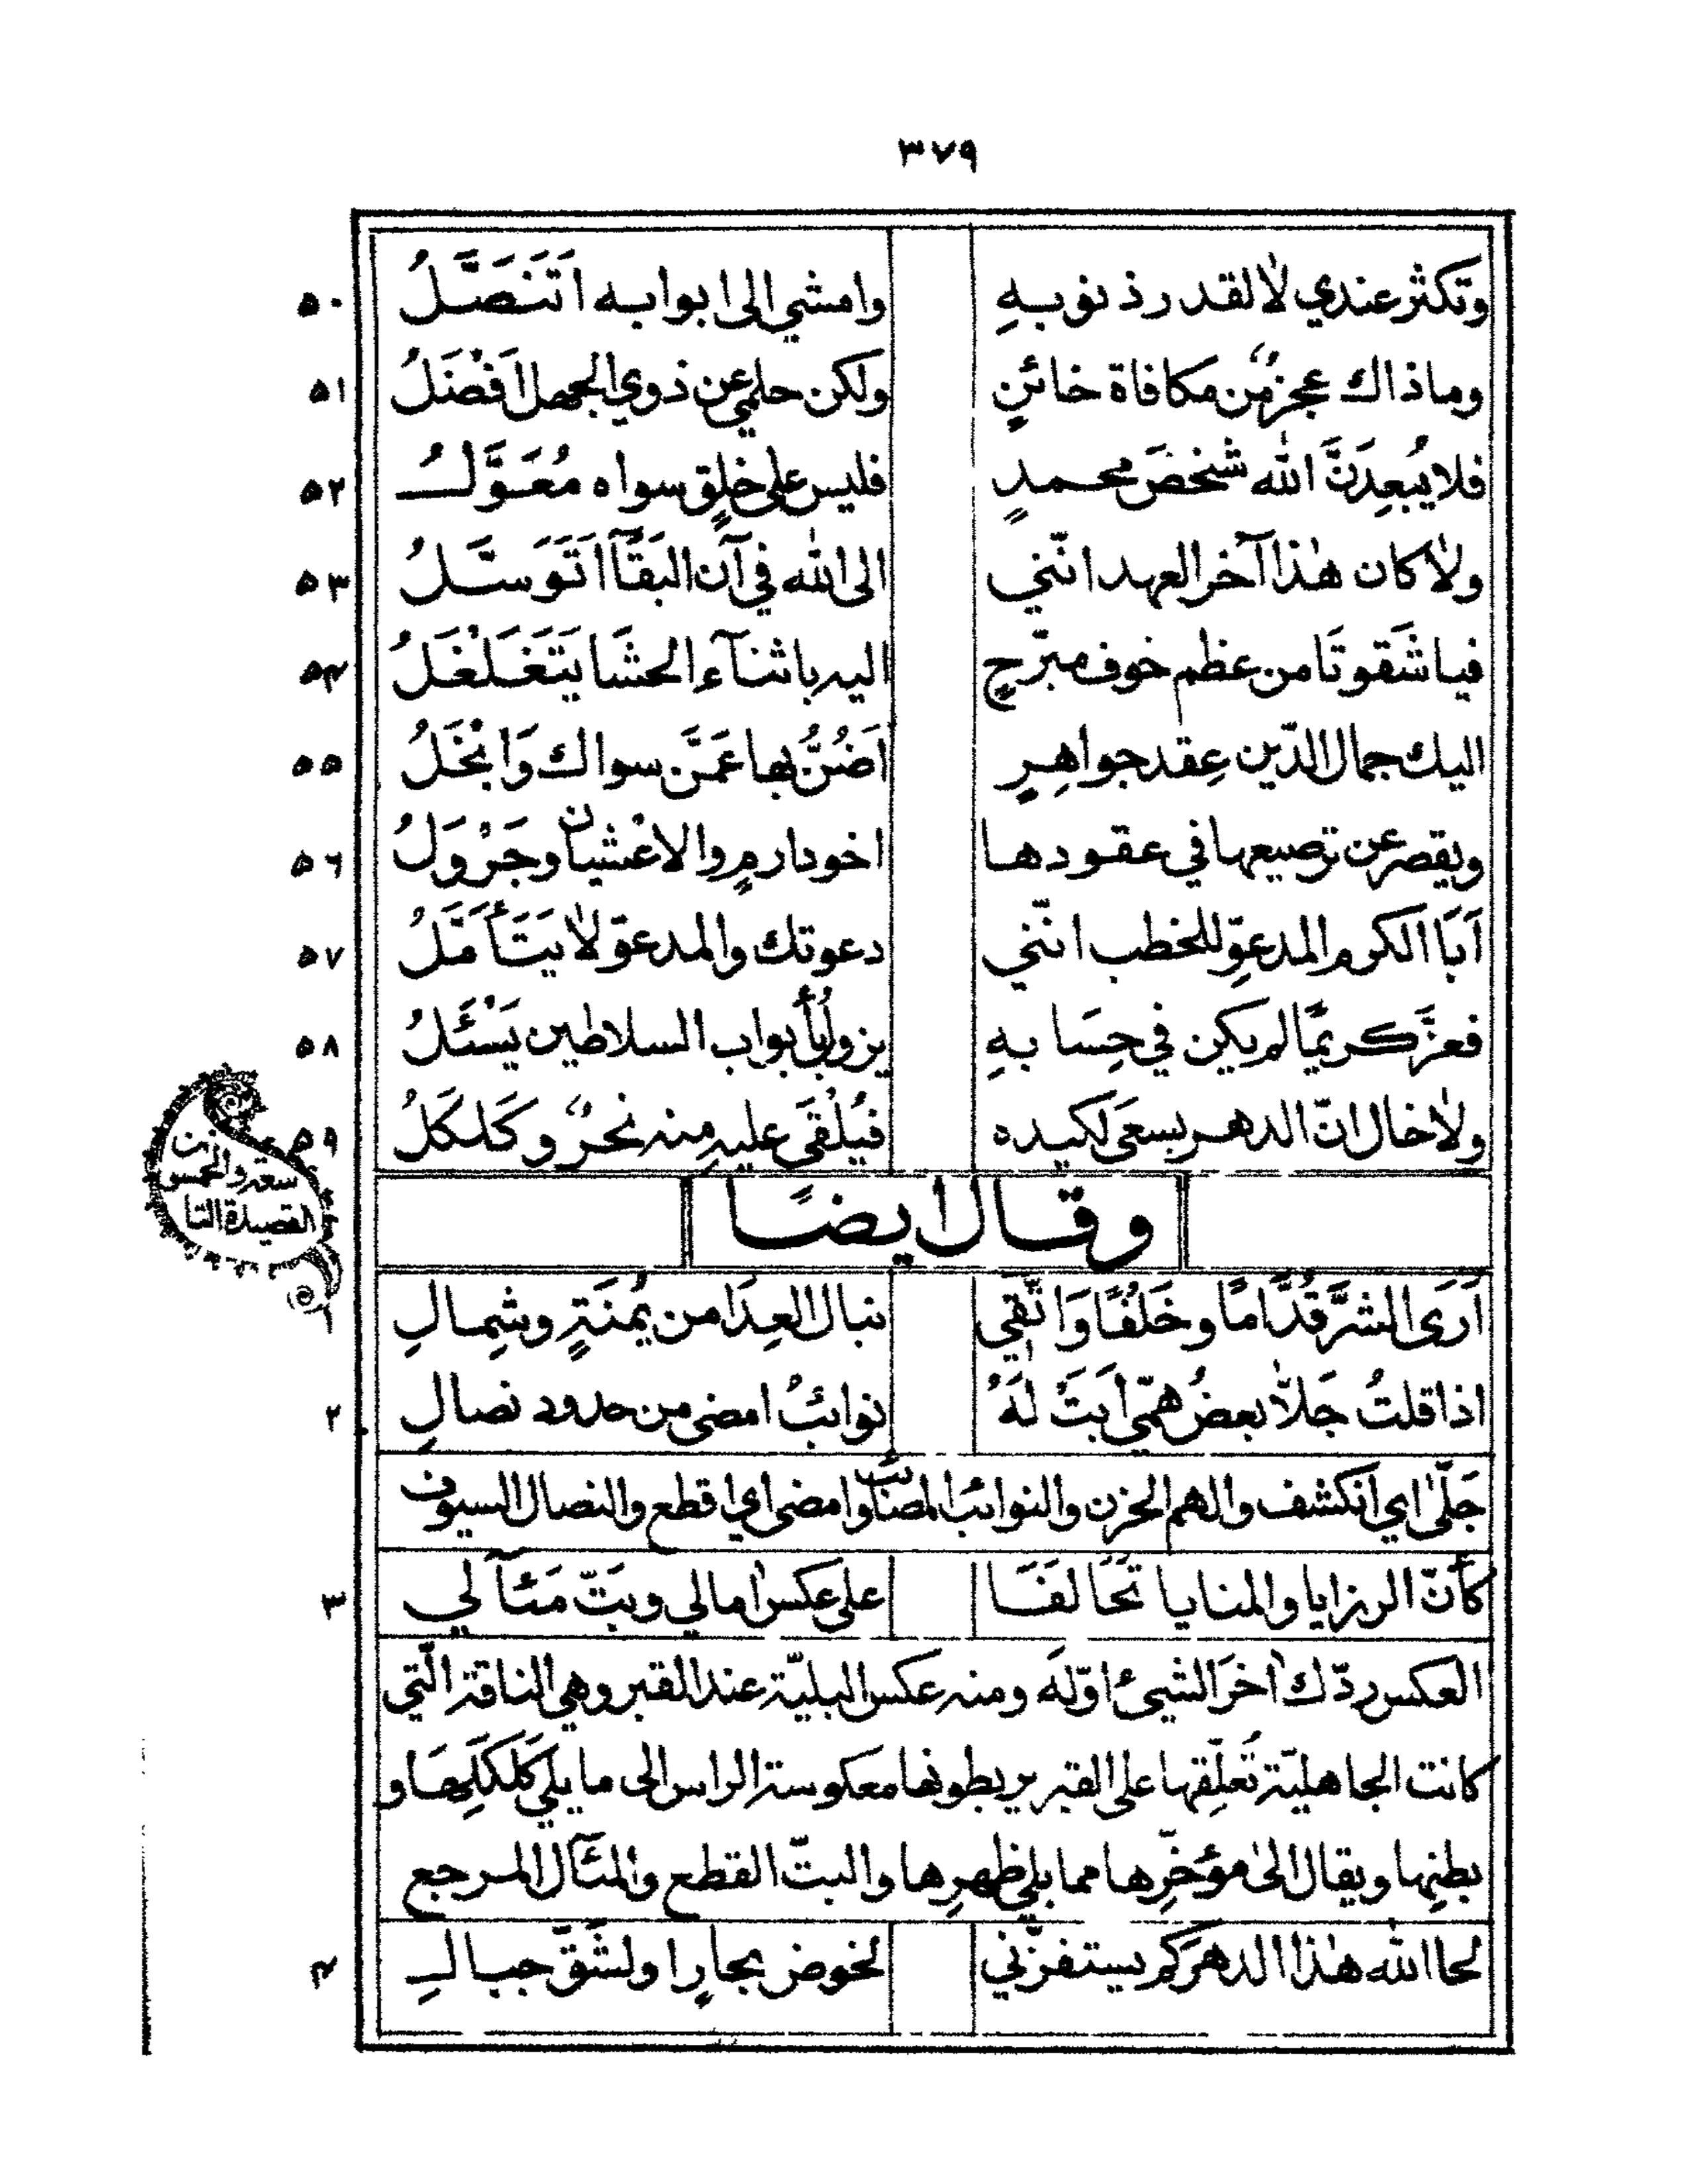 ٣٧٩
وتكثر عندي لا لقدر ذنوبهِ وامشي الى ابوابه اَتَنَصَّلُ ٥٠
وماذاك عجزٌ من مكافاة خائنٍ ولكن حلمي عن ذوي الجهل اَفْضَلُ ٥١
فلا يُبعِدَنَّ الله شخصَ محمدٍ فليس على خلقٍ سواه مُعَوَّلُ ٥٢
ولا كان هٰذا آخر العهد انّني الى الله في آن البَقَآ اَتَوَسَّلُ ٥٣
فيا شَقوتَا من عظم خوف مبرّحٍ اليه باثنآءِ الحشَا يَتَغَلْغَلُ ٥٤
اليك جمال الدّين عِقد جواهِرٍ اَضُنُّ بها عَمَّن سواك وَابْخَلُ ٥٥
ويقصر عن ترصيعها في عقودها اخو دارمٍ والاعْشيان وجَرْوَلُ ٥٦
اَبَا الكرم المدعوِّ للخطب انّني دعوتك والمدعوّ لا يَتَأَمَّلُ ٥٧
فعزَّ كريمًا لم يكن في حِسَابهِ يزولُ بأبواب السلاطين يَسْئَلُ ٥٨
ولا خال انّ الدهر يسعى لكيده فيُلْقَى عليهِ منه نحرٌ وكَلكَلُ ٥٩
القصيدة التا
سعة والخمسون
وقال ايضًا
اَرَى الشرَّ قُدَّامًا وخَلْفًا وَاتَّقِي نبال العِدَا من يُمنَةٍ وشِمالِ ١
اذا قلتُ جَلّا بعضُ همّي اَبَتْ لَهُ نوائبُ امضى من حدود نصالِ ٢
جَلّى اي انكشف والهم الحزن والنوائب المصائب وامضى اي اقطع والنصال السيوف
كأنّ الرزايا والمنايا تَحَالَفَا على عكس امالي وبتّ مَئآلي ٣
العكس ردّك آخرَ الشيئ اوّله ومنه عكس البليّة عند القبر وهي الناقة الّتي
كانت الجاهليّة تُعلّقها على القبر يربطونها معكوسة الراس الى ما يلي كَلكَلِها و
بطنِها ويقال الى مؤخّرِها مما يلي ظهرِها والبتّ القطع والمئآل المرجع
لحا الله هٰذا الدهرَ كم يستفزّني لخوض بحارٍ او لشقّ جبالِ ٤